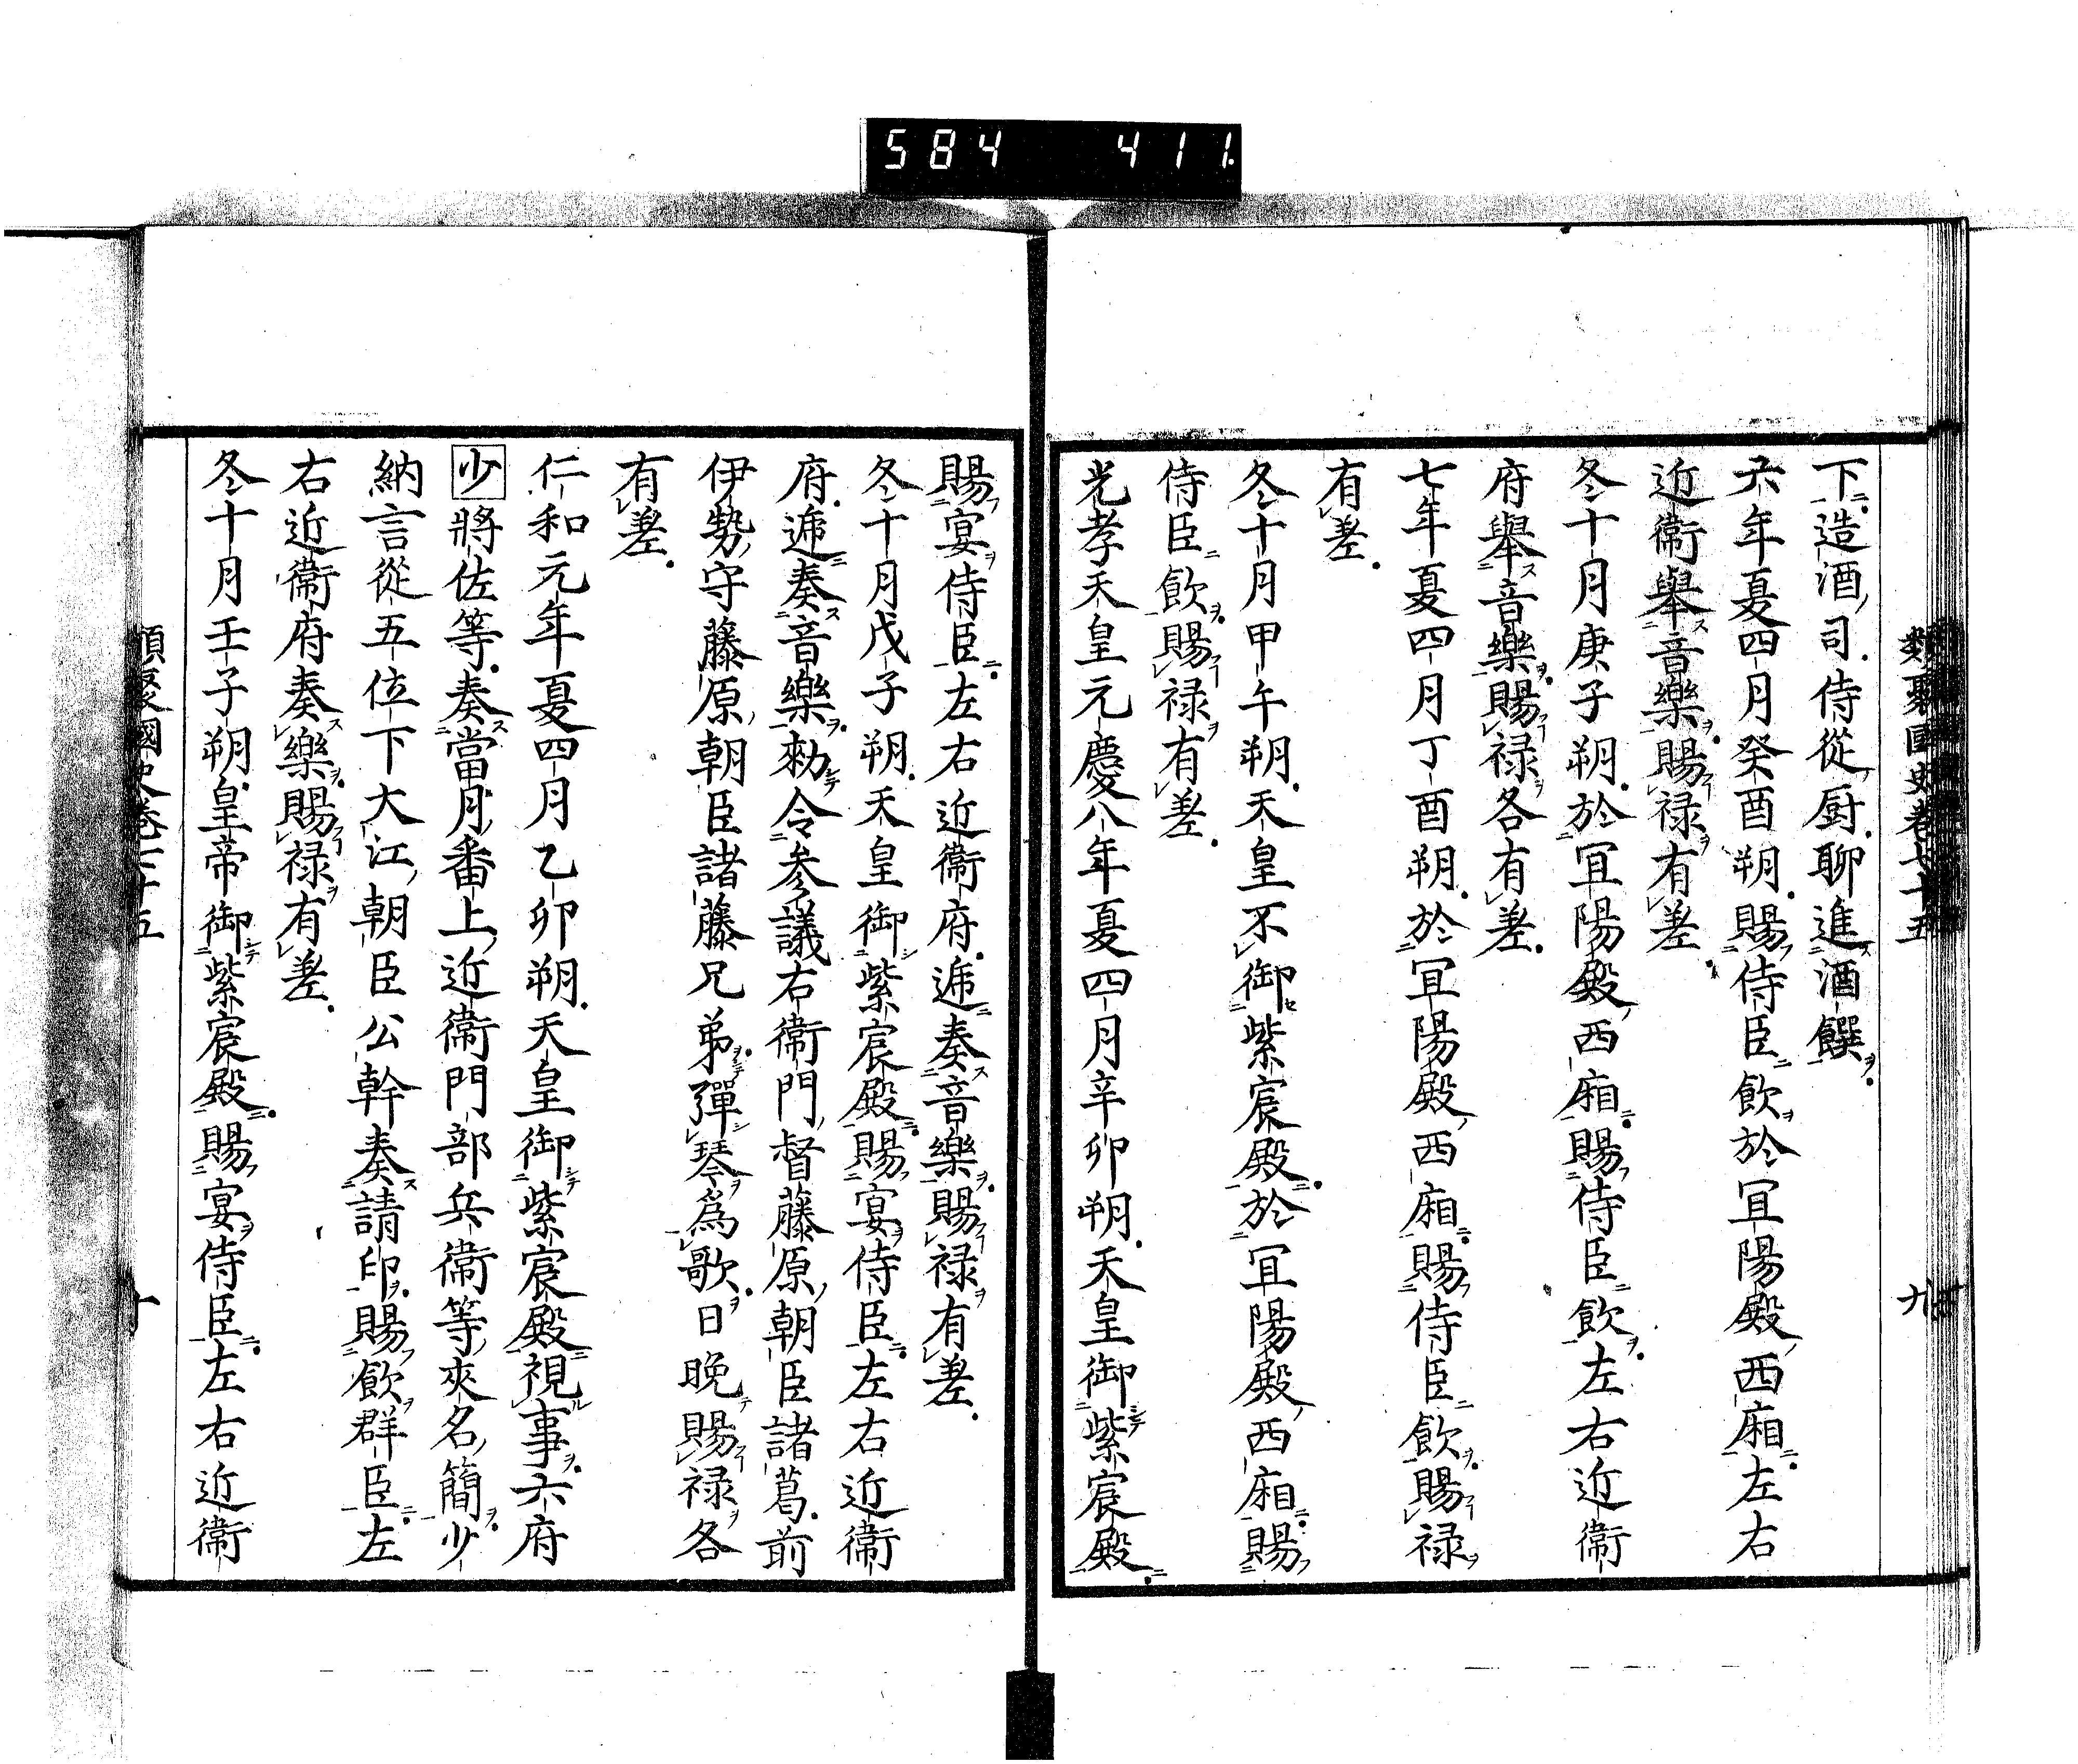 584 411
類聚國史卷七十五 九
下造酒司侍從厨聊進酒饌
六年夏四月癸酉朔賜侍臣飮於冝陽殿西廂左右
近衞擧音樂賜禄有差
冬十月庚子朔於冝陽殿西廂賜侍臣飮左右近衞
府擧音樂賜禄各有差
七年夏四月丁酉朔於冝陽殿西廂賜侍臣飮賜禄
有差
冬十月甲午朔天皇不御紫宸殿於冝陽殿西廂賜
侍臣飮賜禄有差
光孝天皇元慶八年夏四月辛卯朔天皇御紫宸殿
賜宴侍臣左右近衞府遞奏音樂賜禄有差
冬十月戊子朔天皇御紫宸殿賜宴侍臣左右近衞
府遞奏音樂勑令参議右衞門督藤原朝臣諸葛前
伊勢守藤原朝臣諸藤兄弟彈琴爲歌日晚賜禄各
有差
仁和元年夏四月乙卯朔天皇御紫宸殿視事六府
少將佐等奏當月番上近衞門部兵衞等夾名簡少
納言從五位下大江朝臣公幹奏請印賜飮群臣左
右近衞府奏樂賜禄有差
冬十月壬子朔皇帝御紫宸殿賜宴侍臣左右近衞
國史卷七十五 十